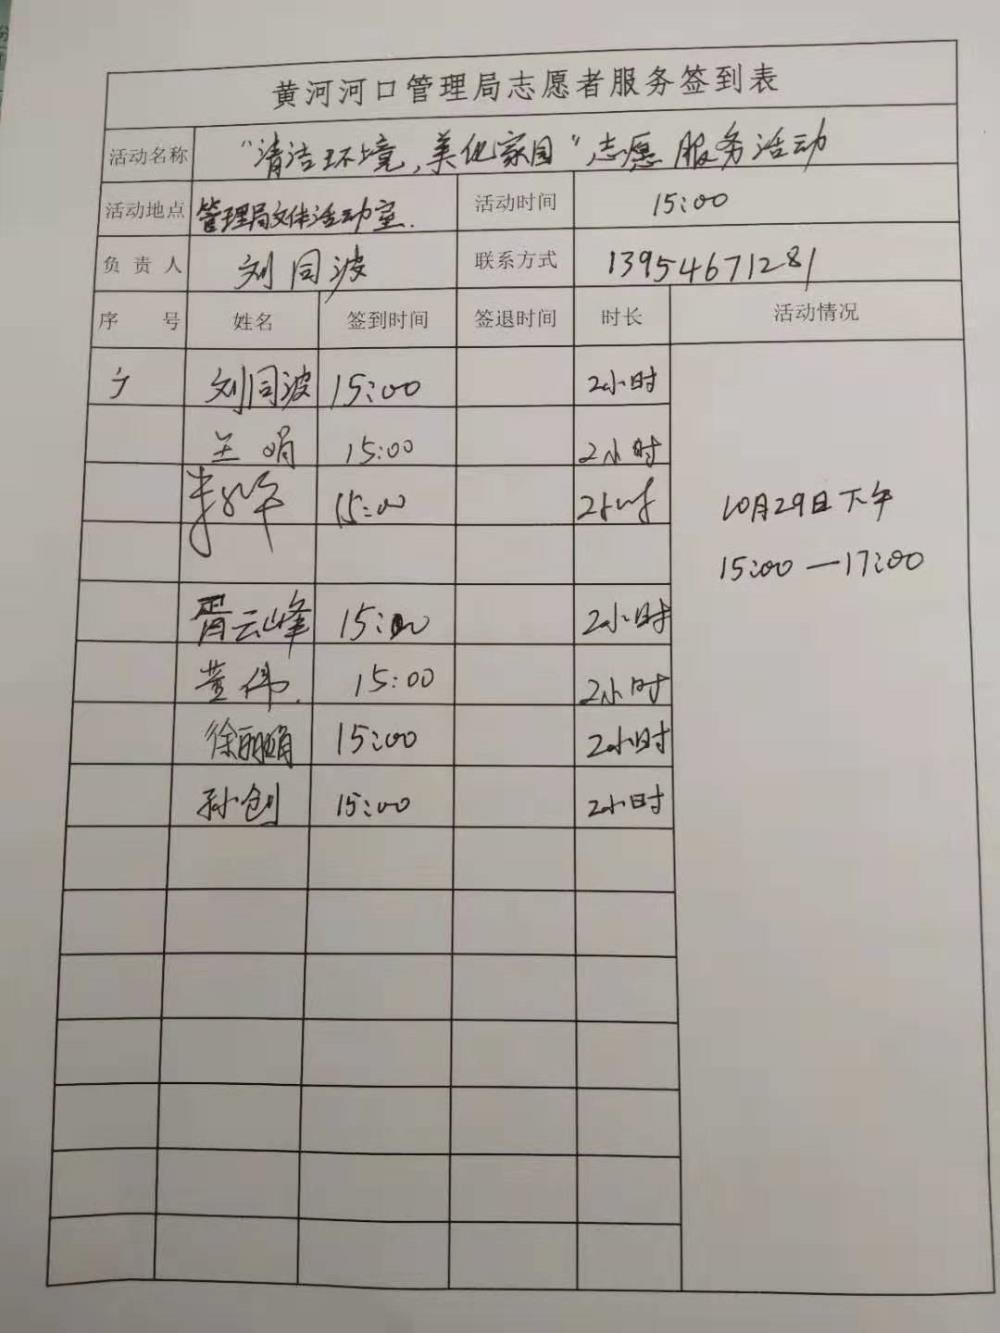 黄河河口管理局志愿者服务签到表
活动名称 "清洁环境,美化家园"志愿服务活动
活动地点 管理局文体活动室. 活动时间 15:00
负责人 刘同波 联系方式 13954671281
序号 姓名 签到时间 签退时间 时长 活动情况
刘同波 15:00 2小时
王娟 15:00 2小时
15:00 2小时
10月29日下午
15:00—17:00
胥云峰 15:00 2小时
董伟. 15:00 2小时
徐丽娟 15:00 2小时
孙创 15:00 2小时